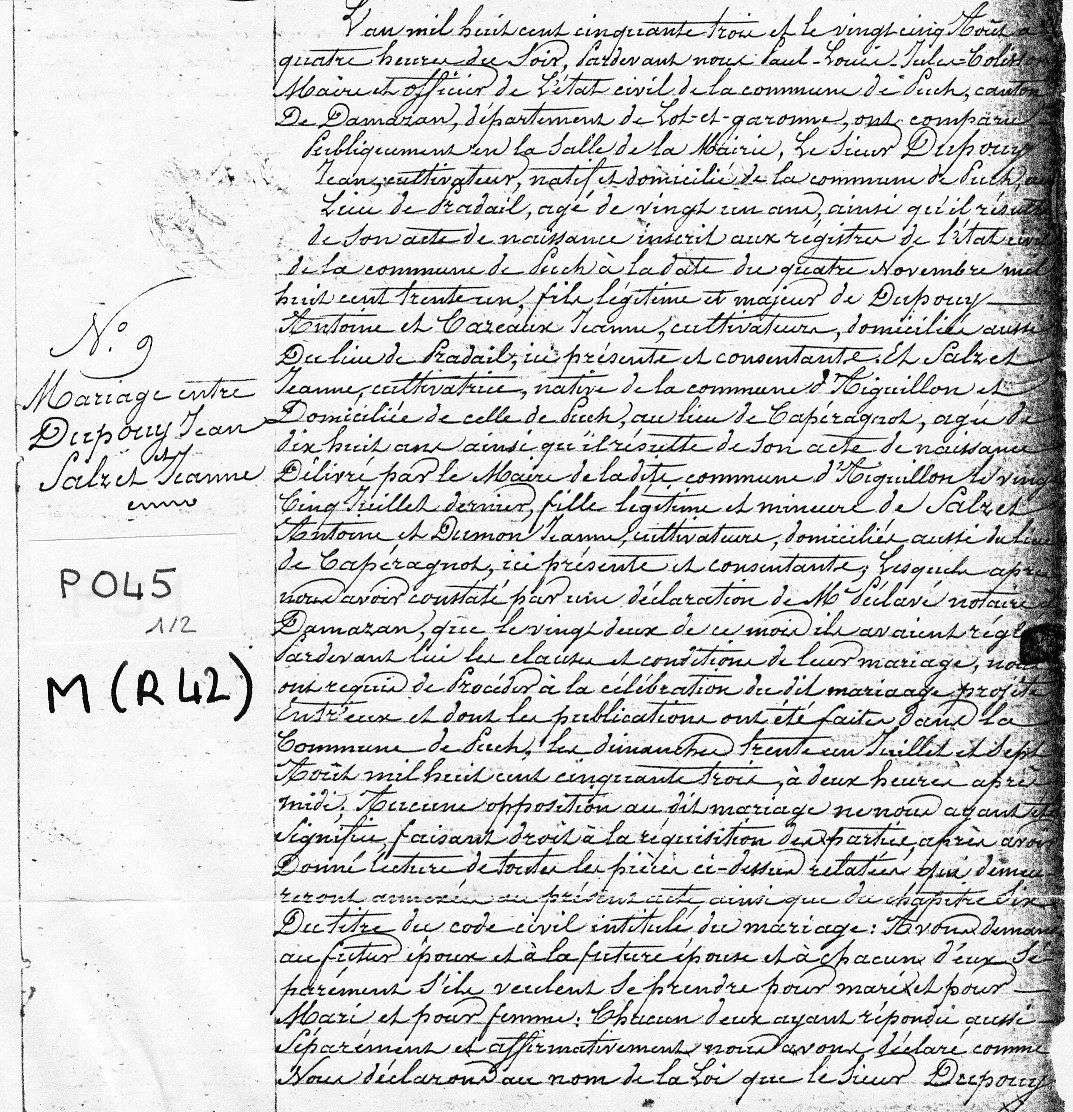 L'an mil huit cent cinquante trois et le vingt cinq Août à
quatre heures du Soir, Pardevant nous Paul-Louis-Jules-
Maire et officier de L'état civil de la commune de Puch, canton
De Damazan, département de Lot-et-garonne, ont comparu
Publiquement en la Salle de la Mairie, Le Sieur Dupouy
Jean, cultivateur, natif et domicilié de la commune de Puch, au
Lieu de Pradail, agé de vingt un ans, ainsi qu'il résulte
de Son acte de naissance inscrit aux régistres de l'état civil
de la commune de Puch à la date du quatre Novembre mil
huit cent trente un, fils légitime et majeur de Dupouy
Antoine et Cazeaux Jeanne, cultivateurs, domiciliés aussi
Du lieu de Pradail, ici présents et consentants. Et Salzet
Jeanne, cultivatrice, native de la commune d'Aiguillon et
Domiciliée de celle de Puch, au lieu de Capéragnot, agée de
dix huit ans ainsi qu'il résulte de Son acte de naissance
Délivré par le Maire de la dite commune d'Aiguillon le vingt
Cinq Juillet dernier, fille légitime et mineure de Salzet
Antoine et Dumon Jeanne, cultivateurs, domiciliés aussi du lieu
de Capéragnot, ici présents et consentants; Lesquels après
nous avoir constaté par une déclaration de Me Déclavé notaire à
Damazan, que le vingt deux de ce mois ils avaient réglé
Pardevant lui les clauses et conditions de leur mariage, nous
ont requis de Procéder à la célébration du dit mariaage projeté
Entr'eux et dont les publications ont été faites dans la
Commune de Puch, les dimanches trente un Juillet et Sept
Août mil huit cent cinquante trois, à deux heures après
midi; Aucune opposition au dit mariage ne nous ayant été
Signifiée, faisant droit à la réquisition des parties, après avoir
Donné lecture de toutes les pièces ci-dessus relatées, qui demeu-
reront annexées au présent acte ainsi que du chapitre Six
Du titre du code civil intitulé du mariage: Avons demandé
au futur époux et à la future épouse et à chacun d'eux Sé-
parément S'ils veulent Se prendre pour mari et pour
Mari et pour femme: Chacun deux ayant répondu aussi
Séparément et affirmativement nous avons déclaré comme
Nous déclarons au nom de la Loi que le Sieur Dupouy
N° 9
Mariage entre
Dupouy Jean
et
Salzet Jeanne
PO45
1/2
M (R42)